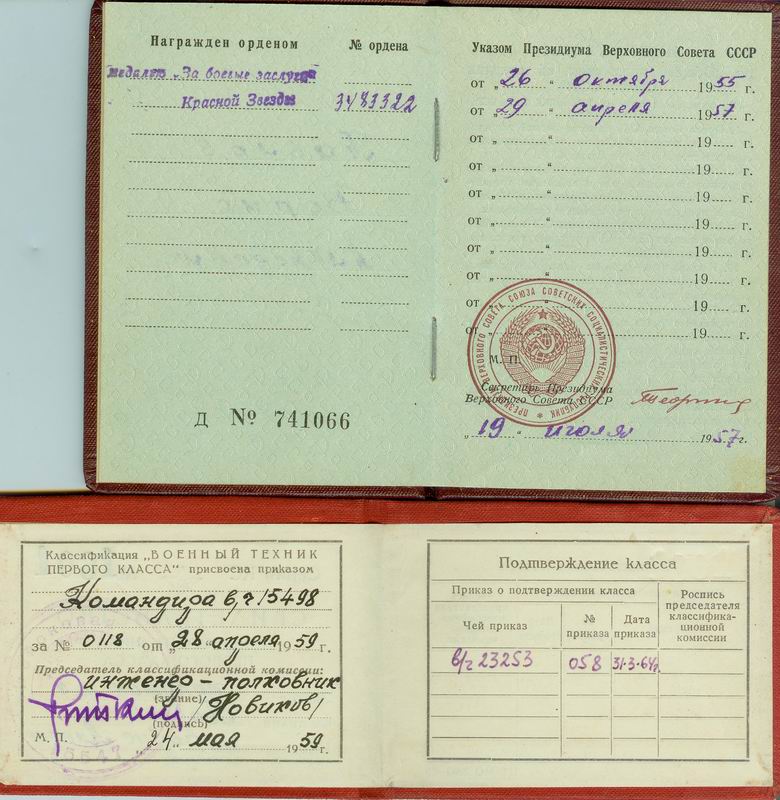 Награжден орденом
№ ордена
медалью „За боевые заслуги"
Красной Звезды 3483322
Д № 741066
Указом Президиума Верховного Совета СССР
от „26" октября 1955 г.
от „29" апреля 1957 г.
от „ " 19 г.
от „ " 19 г.
от „ " 19 г.
от „ " 19 г.
от „ " 19 г.
от „ " 19 г.
от „ " 19 г.
от „ " 19 г.
ПРЕЗИДИУМ ВЕРХОВНОГО СОВЕТА СОЮЗА СОВЕТСКИХ СОЦИАЛИСТИЧЕСКИХ РЕСПУБЛИК
М. П.
Секретарь Президиума
Верховного Совета СССР
„19" июля 1957 г.
Классификация „ВОЕННЫЙ ТЕХНИК
ПЕРВОГО КЛАССА" присвоена приказом
Командира в/ч 15498
за № 0118 от „28" апреля 1959 г.
Председатель классификационной комиссии:
инженер - полковник
(звание)
/Новиков/
(подпись)
М. П. „24" мая 1959 г.
Подтверждение класса
Приказ о подтверждении класса
Роспись
председателя
классифика-
ционной
комиссии
Чей приказ
№
приказа
Дата
приказа
в/ч 23253 058 31-3-64г.